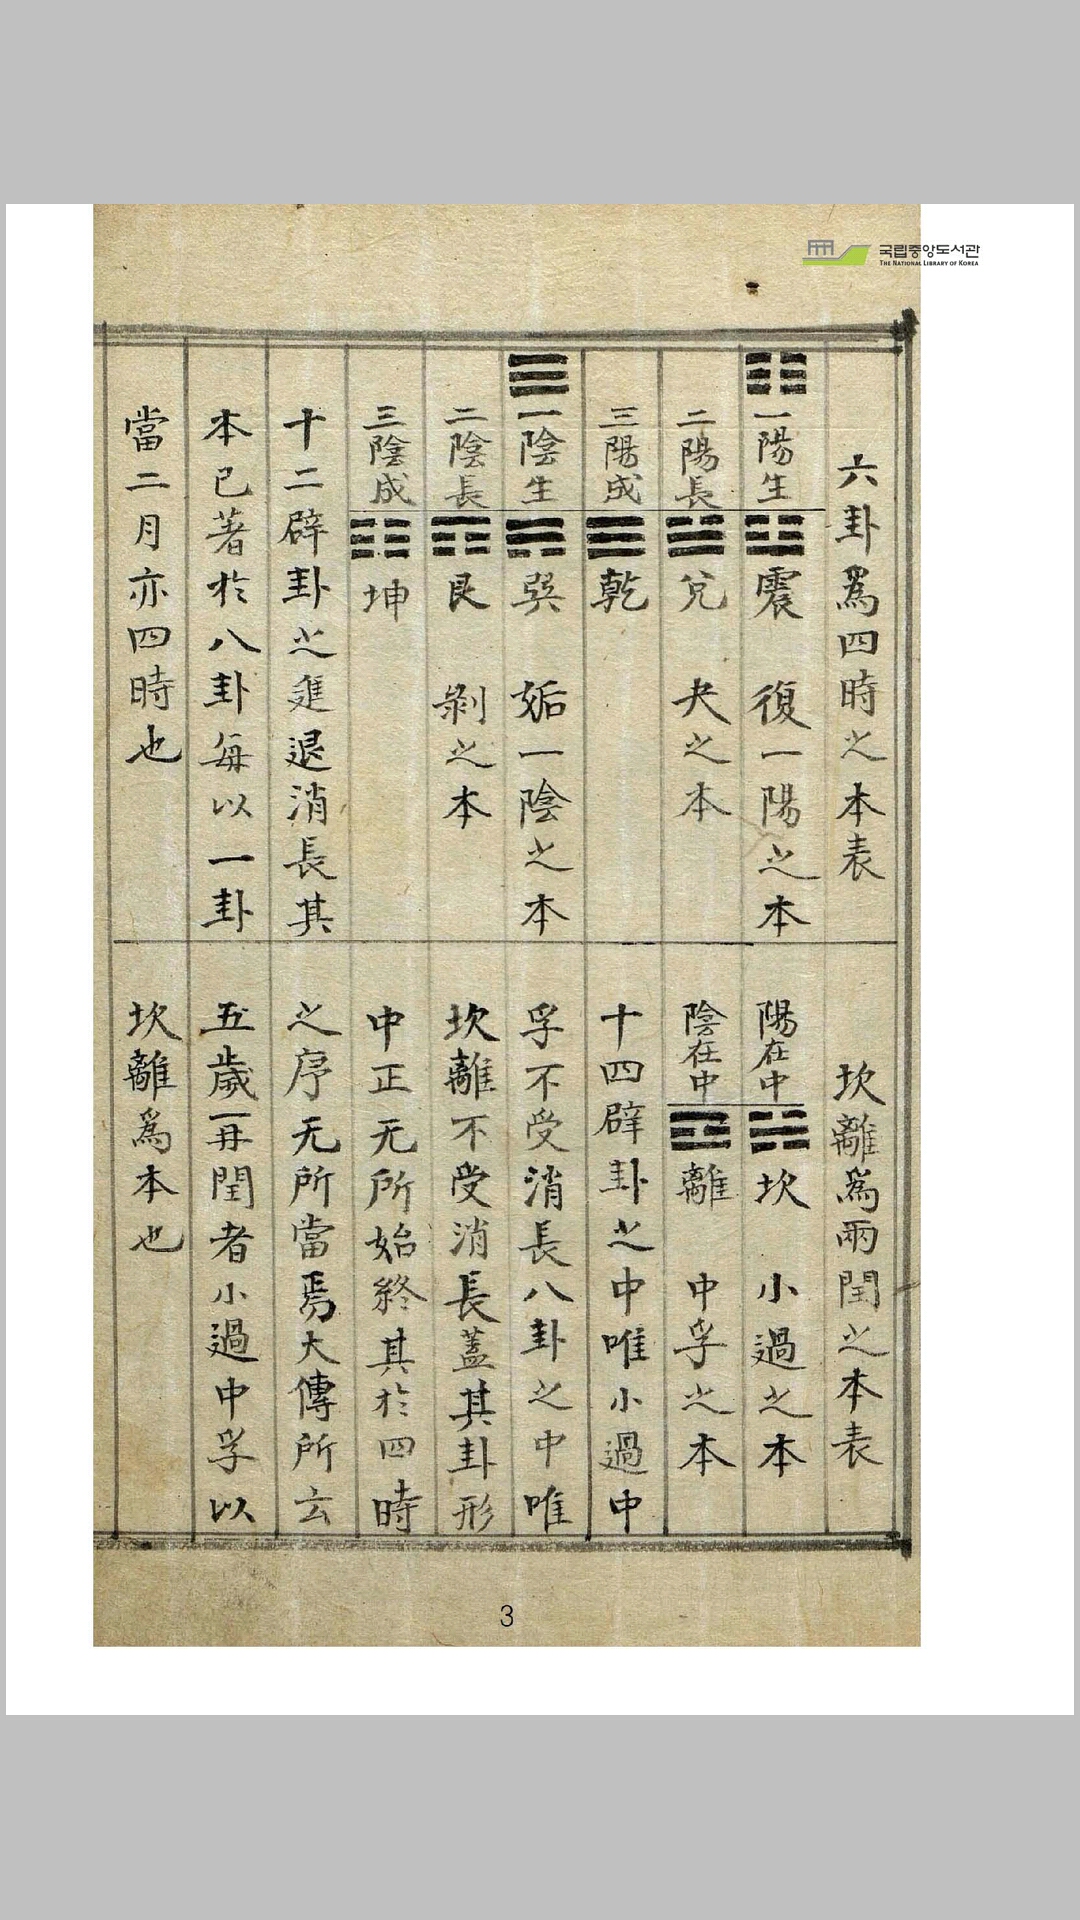 국립중앙도서관
THE NATIONAL LIBRARY OF KOREA
六卦爲四時之本表
☷ 一陽生 ☳ 震 復一陽之本
二陽長 ☱ 兌 夬之本
三陽成 ☰ 乾
☰ 一陰生 ☴ 巽 姤一陰之本
二陰長 ☶ 艮 剝之本
三陰成 ☷ 坤
十二辟卦之進退消長其
本已著於八卦每以一卦
當二月亦四時也
坎離爲兩閏之本表
陽在中 ☵ 坎 小過之本
陰在中 ☲ 離 中孚之本
十四辟卦之中唯小過中
孚不受消長八卦之中唯
坎離不受消長蓋其卦形
中正无所始終其於四時
之序无所當焉大傳所云
五歲再閏者小過中孚以
坎離爲本也
3